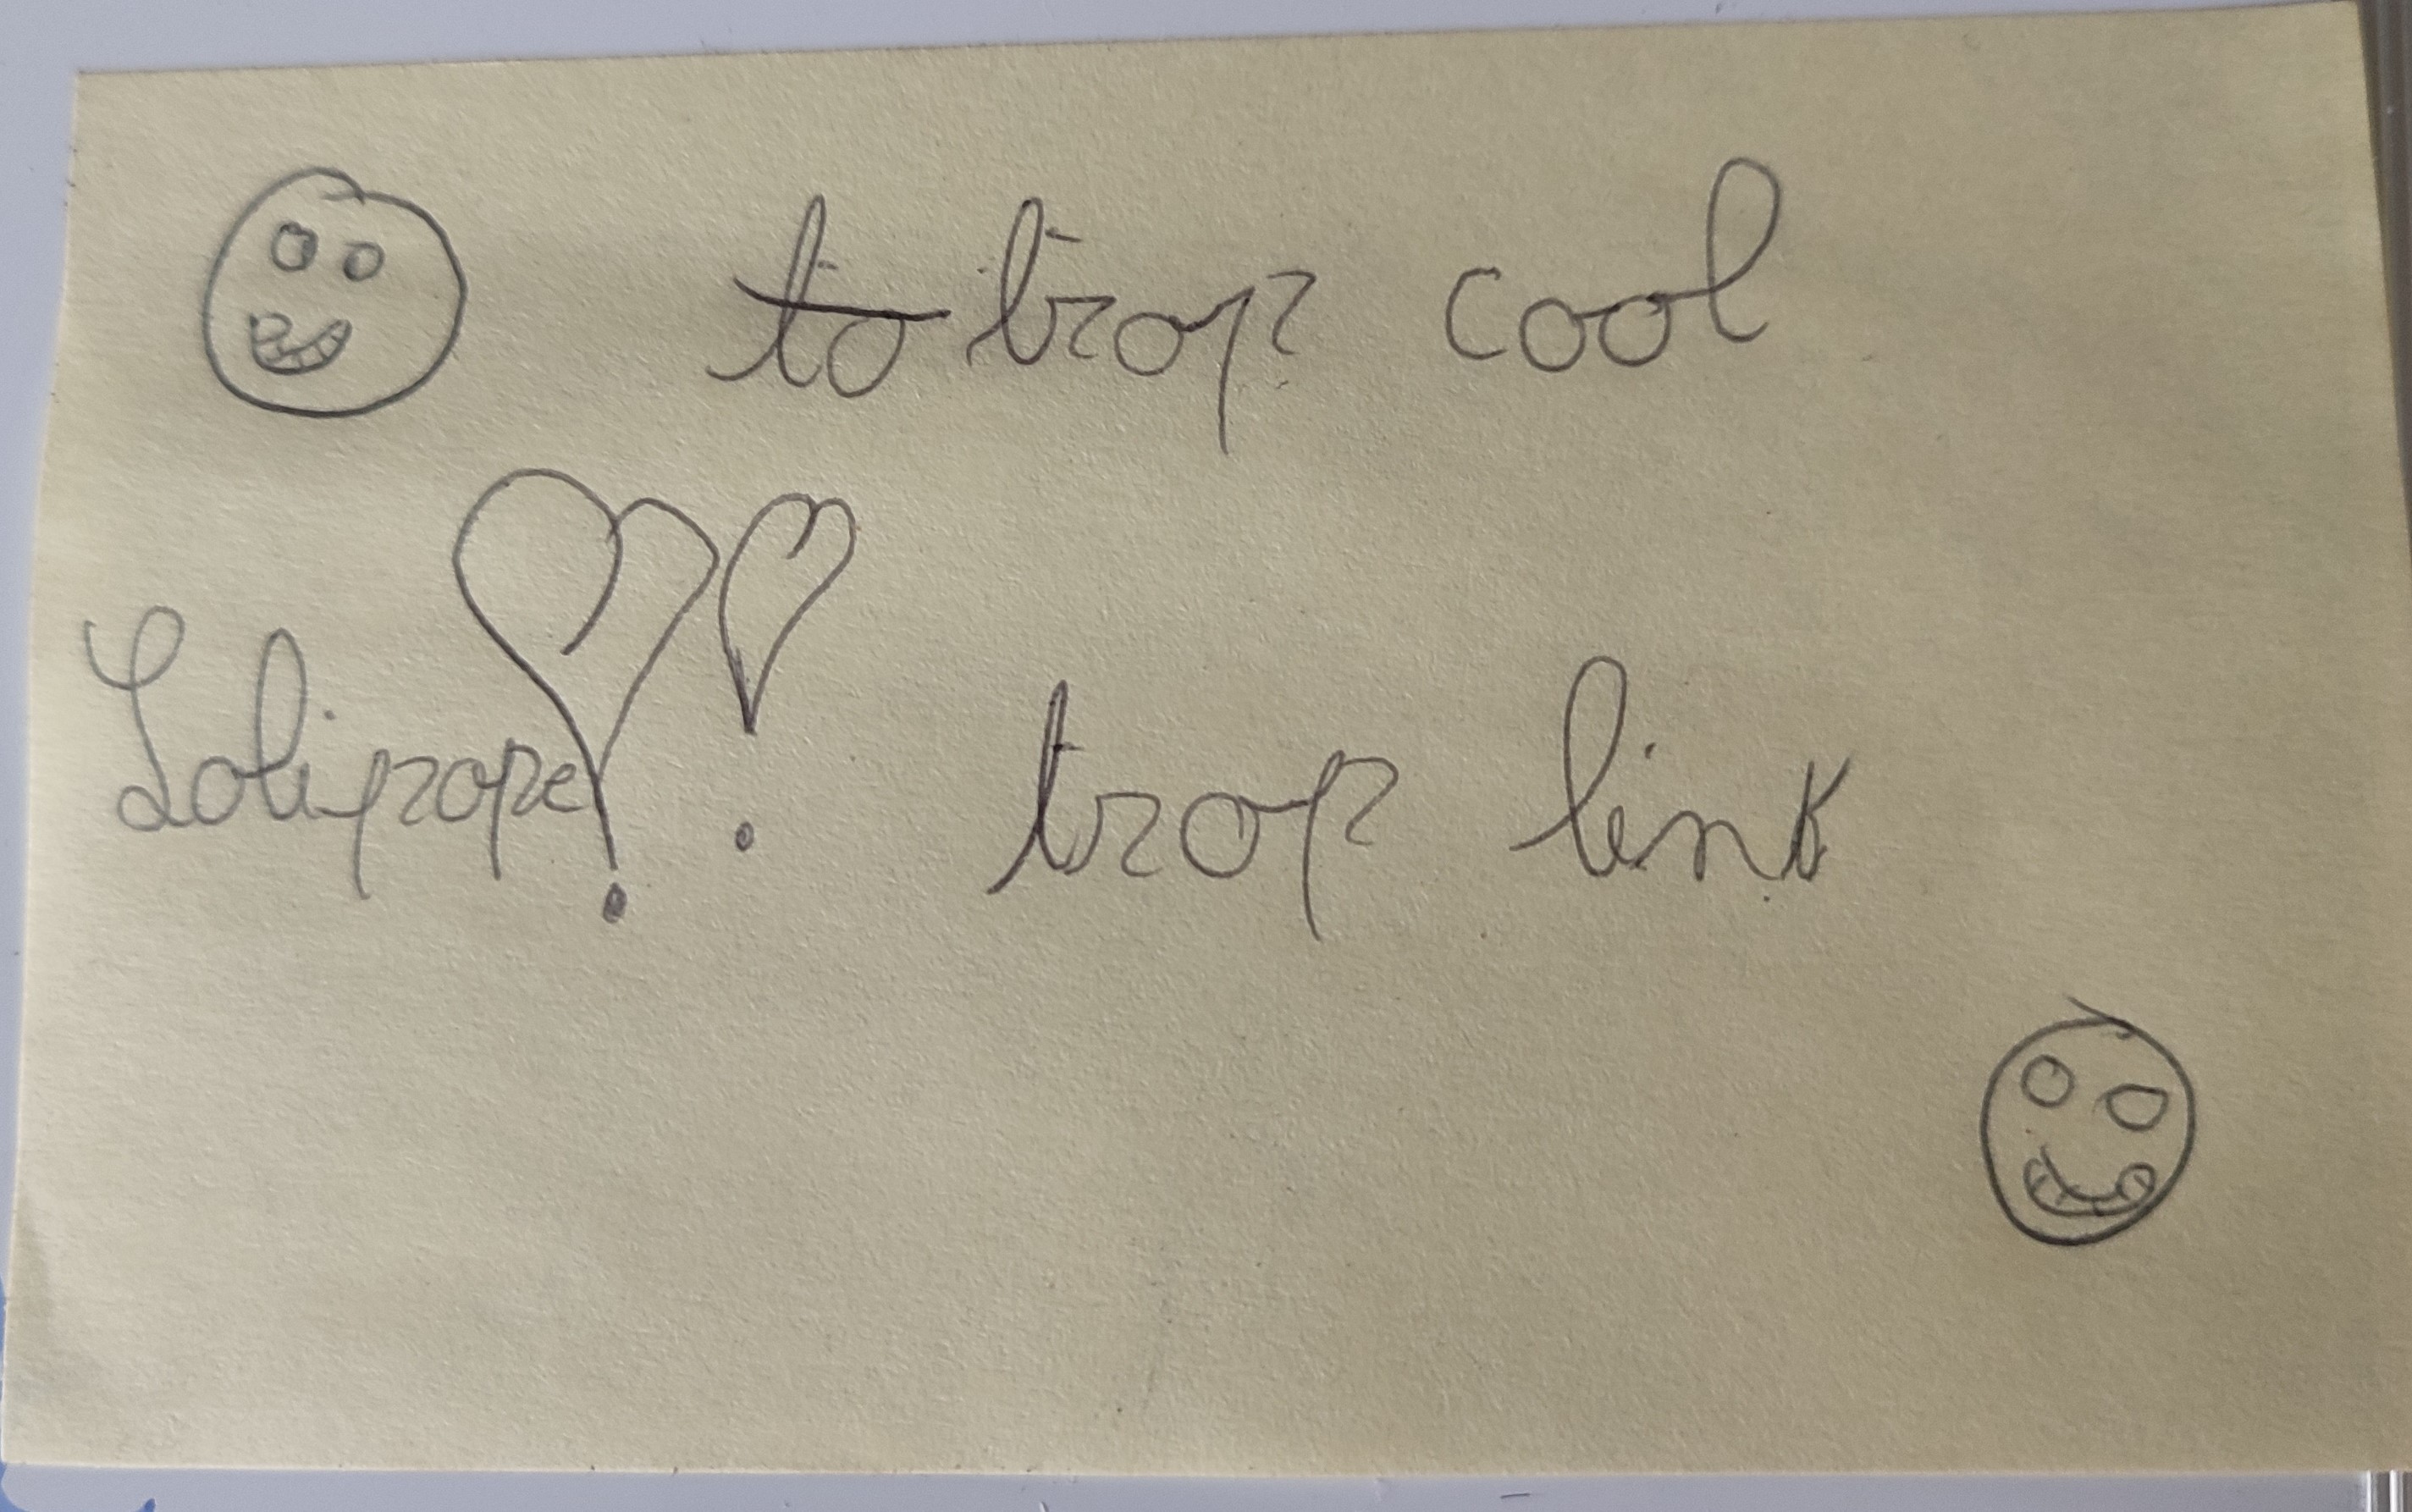 to trop cool
Lolipope !! trop link